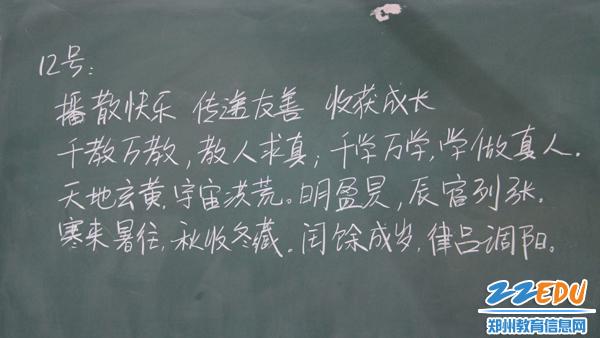 12号:
播散快乐 传递友善 收获成长
千教万教,教人求真;千学万学,学做真人.
天地玄黄,宇宙洪荒。日月盈昃,辰宿列张.
寒来暑往,秋收冬藏.闰馀成岁,律吕调阳。
22EDU
郑州教育信息网